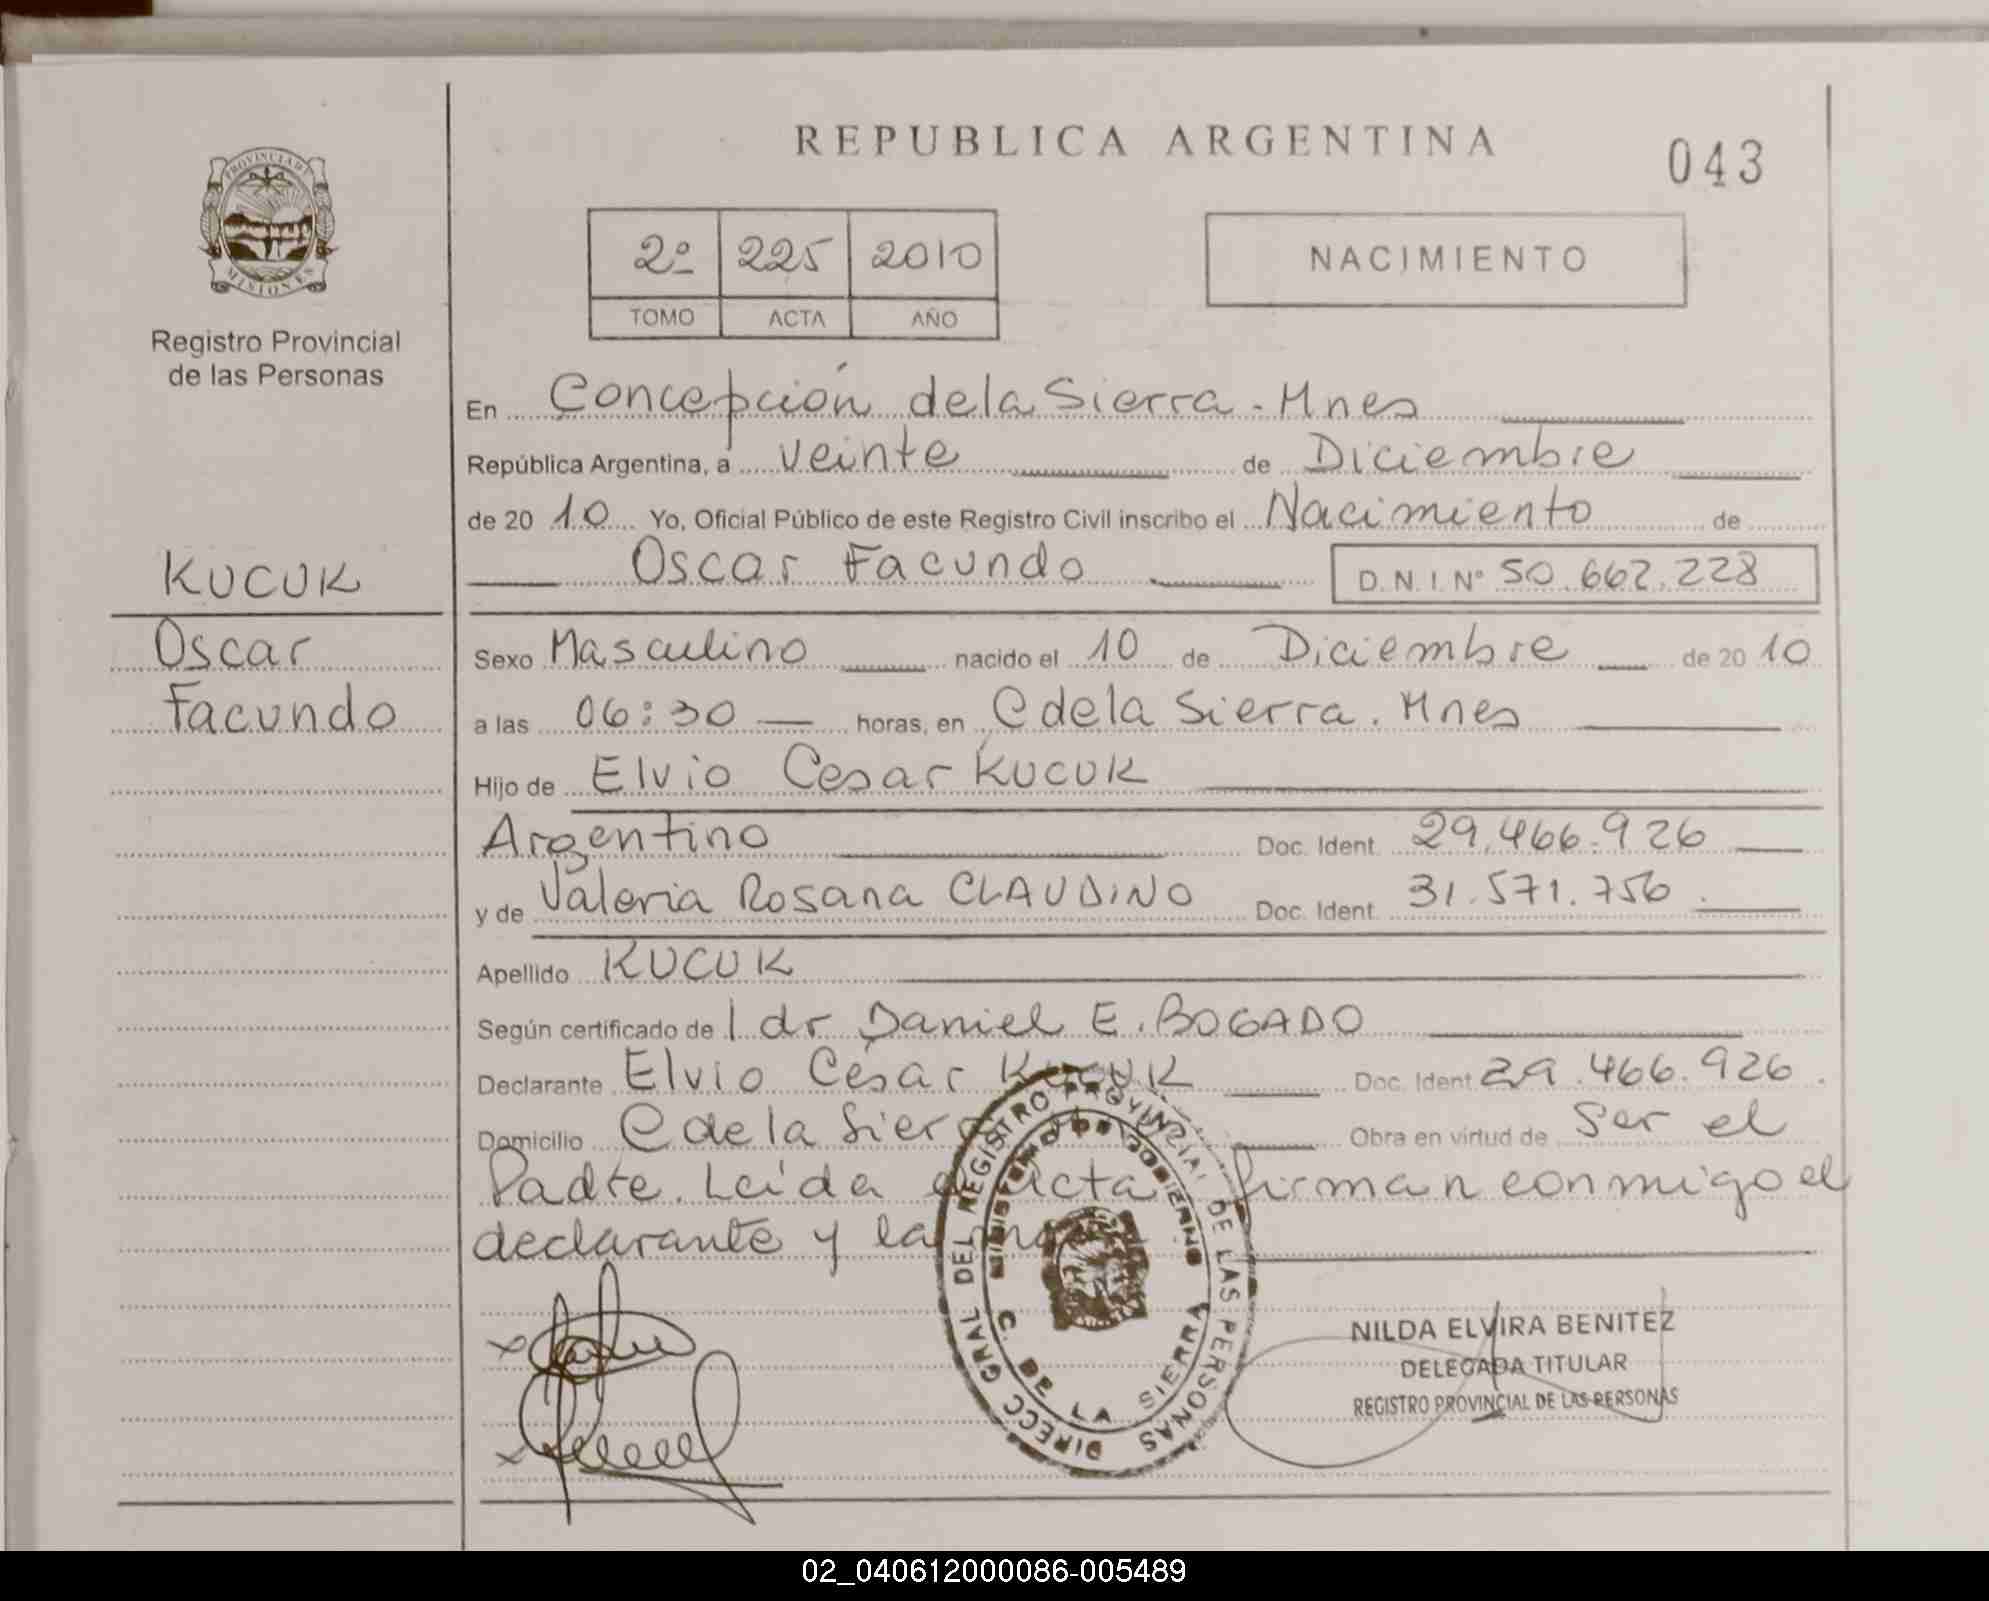 REPUBLICA ARGENTINA
043
PROVINCIA DE MISIONES
Registro Provincial
de las Personas
2º 225 2010
TOMO ACTA AÑO
NACIMIENTO
En Concepción de la Sierra - Mnes
República Argentina, a veinte de Diciembre
de 20 10 Yo, Oficial Público de este Registro Civil inscribo el Nacimiento de
Oscar Facundo D.N.I. Nº 50.662.228
KUCUK
Oscar
Facundo
Sexo Masculino nacido el 10 de Diciembre de 20 10
a las 06:30 horas, en C de la Sierra. Mnes
Hijo de Elvio Cesar KUCUK
Argentino Doc. Ident. 29.466.926
y de Valeria Rosana CLAUDINO Doc. Ident. 31.571.756
Apellido KUCUK
Según certificado de l dr Daniel E. BOGADO
Declarante Elvio César KUCUK Doc. Ident 29.466.926.
Domicilio C de la Sierra Obra en virtud de Ser el
Padre. Leida el Acta firman conmigo el
declarante y la
DIRECC GRAL DEL REGISTRO PROVINCIAL DE LAS PERSONAS
MINISTERIO DE GOBIERNO
C. DE LA SIERRA
NILDA ELVIRA BENITEZ
DELEGADA TITULAR
REGISTRO PROVINCIAL DE LAS PERSONAS
02_040612000086-005489